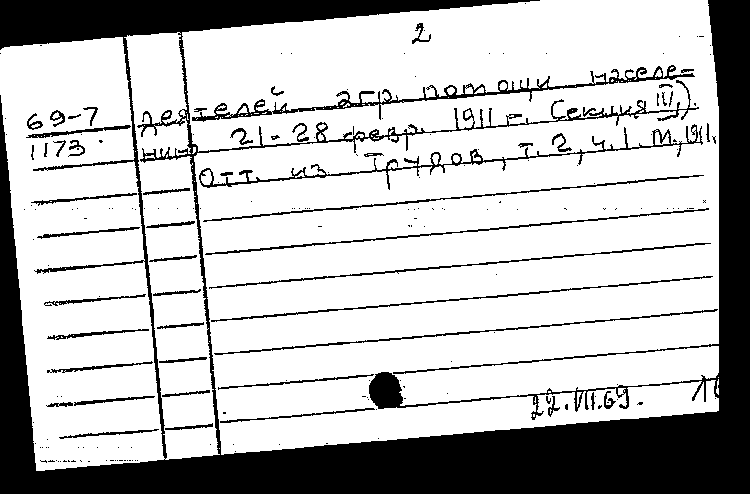 2
69-7 деятелей агр. помощи населе=
1173. нию 21-28 февр. 1911 г. Секция IV).
Отт. из Трудов, т. 2, ч. 1. М., 1911.
22.VII.69.